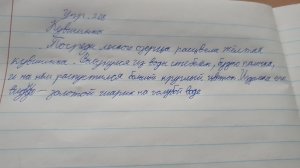 Упр. 268
Кувшинка
Посреди лесного озерца расцвела жёлтая
кувшинка. Вынырнул из воды стебелёк, будто
и на нём распустился большой круглый цветок. Издалека его
видно — золотой шарик на голубой воде